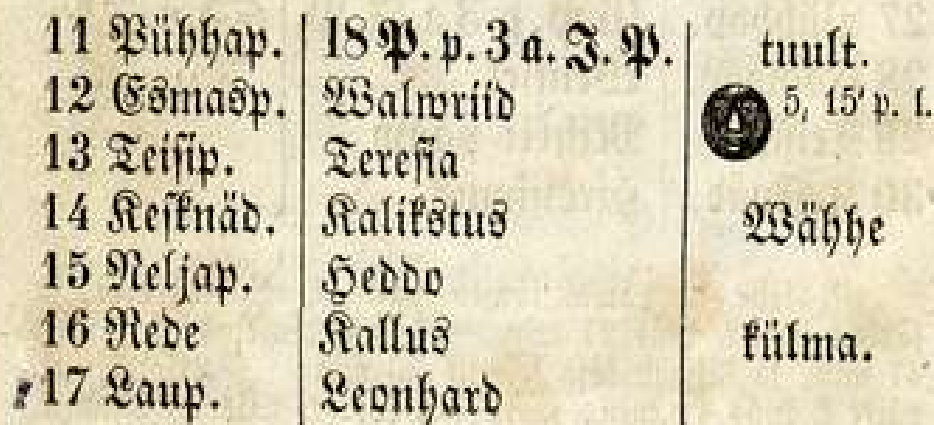 11 Pühhap. 18 P. p. 3 a. J. P. tuult.
12 Esmasp. Walwriid 5, 15' p. l.
13 Teisip. Teresia
14 Kesknäd. Kalikstus Wähhe
15 Neljap. Heddo
16 Rede Kallus külma.
17 Laup. Leonhard